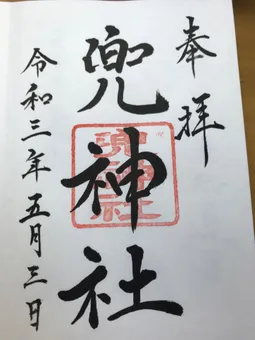 奉拝
兜神社
兜神社
令和三年五月三日